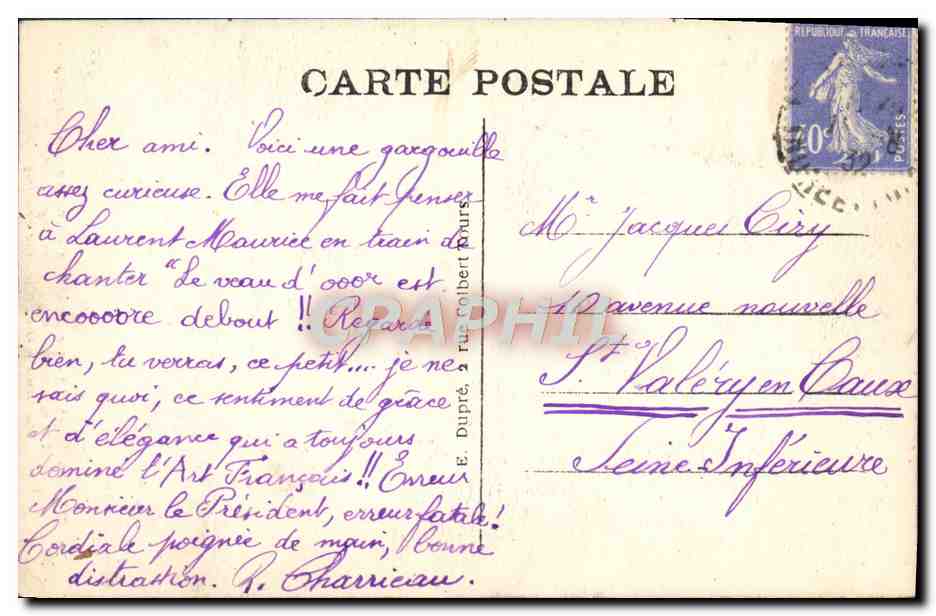 CARTE POSTALE
REPUBLIQUE FRANÇAISE
40c
POSTES
Cher ami. Voici une gargouille
assez curieuse. Elle me fait penser
à Laurent Maurice en train de
chanter "Le veau d'ooor est
encoooore debout !! Regarde
bien, tu verras, ce petit.... je ne
sais quoi, ce sentiment de grâce
et d'élégance qui a toujours
dominé l'Art Français!! Erreur
Monsieur le Président, erreur fatale!
Cordiale poignée de main, bonne
distraction. R. Charrieau.
E. Dupré, 2 rue Colbert Tours.
CPAPHIL
Mr Jacques Ciry
10 avenue nouvelle
St Valéry en Caux
Seine Inférieure